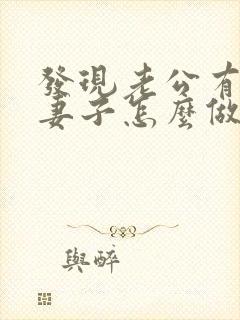 發現老公有
妻子怎麼做
與醉